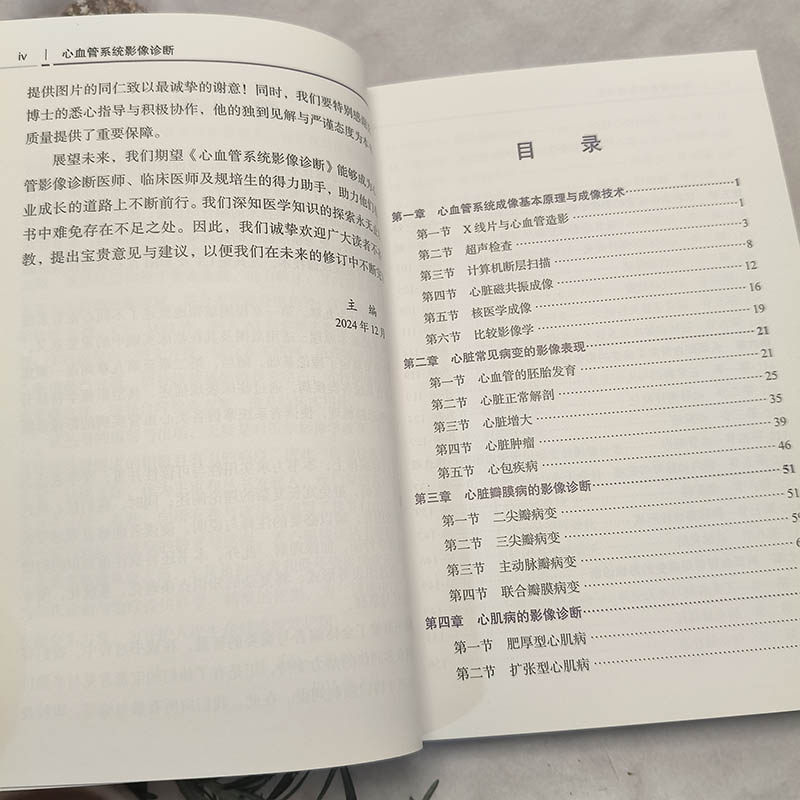 iv 心血管系统影像诊断
提供图片的同仁致以最诚挚的谢意！同时，我们要特别感谢
博士的悉心指导与积极协作，他的独到见解与严谨态度为本
质量提供了重要保障。
展望未来，我们期望《心血管系统影像诊断》能够成为
管影像诊断医师、临床医师及规培生的得力助手，助力他们
业成长的道路上不断前行。我们深知医学知识的探索永无
书中难免存在不足之处。因此，我们诚挚欢迎广大读者不
教，提出宝贵意见与建议，以便我们在未来的修订中不断完
主 编
2024 年 12 月
目 录
第一章 心血管系统成像基本原理与成像技术 1
第一节 X 线片与心血管造影 1
第二节 超声检查 3
第三节 计算机断层扫描 8
第四节 心脏磁共振成像 12
第五节 核医学成像 16
第六节 比较影像学 19
第二章 心脏常见病变的影像表现 21
第一节 心血管的胚胎发育 21
第二节 心脏正常解剖 25
第三节 心脏增大 35
第四节 心脏肿瘤 39
第五节 心包疾病 46
第三章 心脏瓣膜病的影像诊断 51
第一节 二尖瓣病变 51
第二节 三尖瓣病变 59
第三节 主动脉瓣病变
第四节 联合瓣膜病变
第四章 心肌病的影像诊断
第一节 肥厚型心肌病
第二节 扩张型心肌病